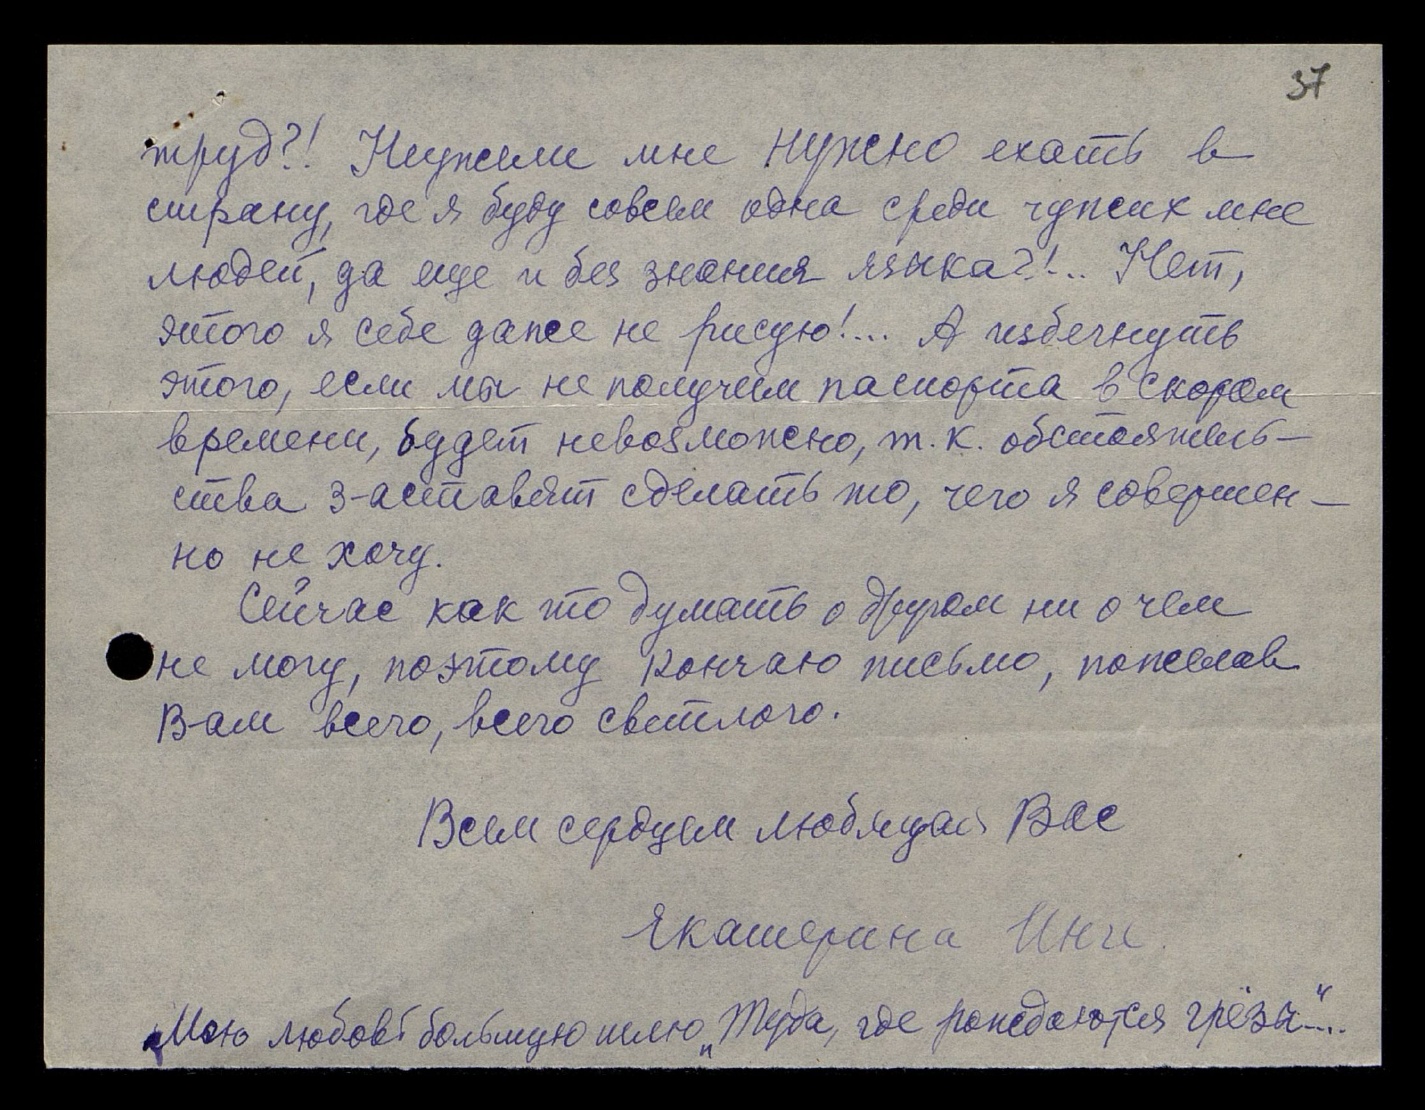 37
труд?! Неужели мне нужно ехать в
страну, где я буду совсем одна среди чужих мне
людей, да еще и без знания языка?!.. Нет,
этого я себе даже не рисую!... А избегнуть
этого, если мы не получим паспорта в скором
времени, будет невозможно, т.к. обстоятель-
ства заставят сделать то, чего я совершен-
но не хочу.
Сейчас как то думать о другом ни о чем
не могу, поэтому кончаю письмо, пожелав
Вам всего, всего светлого.
Всем сердцем любящая Вас
Екатерина Инге
Мою любовь большую шлю „Туда, где рождаются грёзы"...